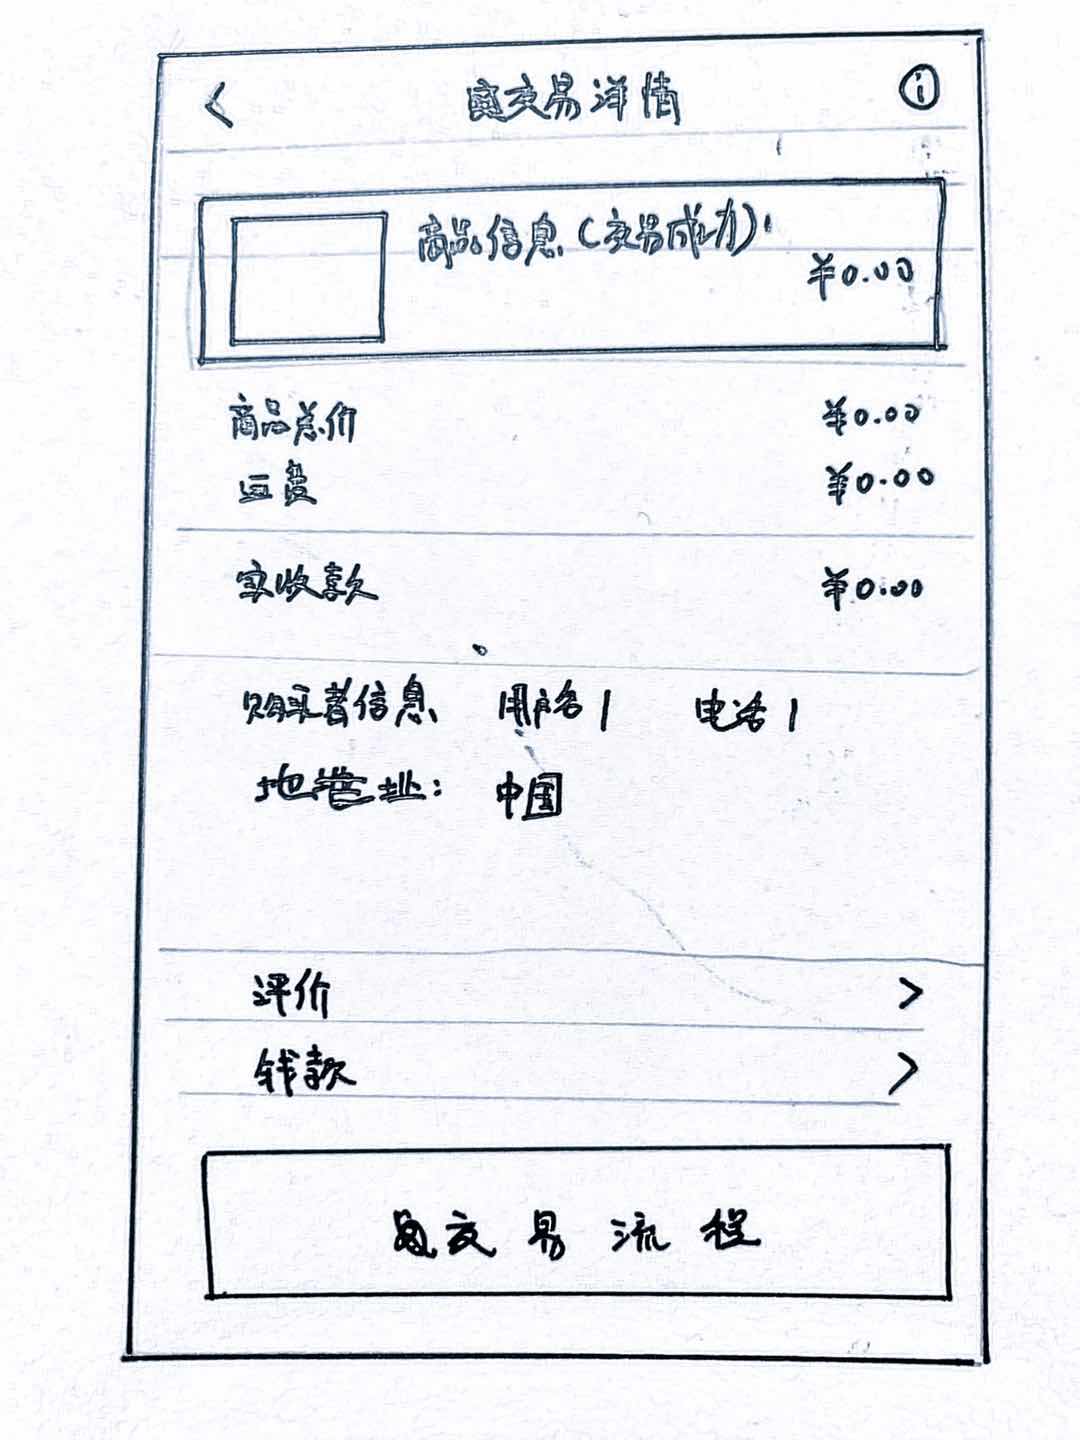 < 交易详情 i
商品信息(交易成功)
¥0.00
商品总价 ¥0.00
运费 ¥0.00
实收款 ¥0.00
购买者信息 用户名1 电话1
地址: 中国
评价 >
钱款 >
交易流程